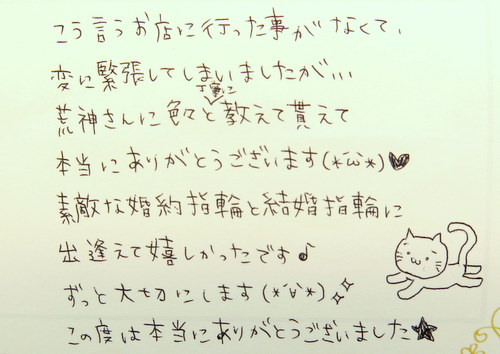 こう言うお店に行った事がなくて、
変に緊張してしまいましたが、、、
荒神さんに色々丁寧に教えて貰えて
本当にありがとうございます(*´ω`*)♥
素敵な婚約指輪と結婚指輪に
出逢えて嬉しかったです♪
ずっと大切にします(*´∀`*)✧
この度は本当にありがとうございました★